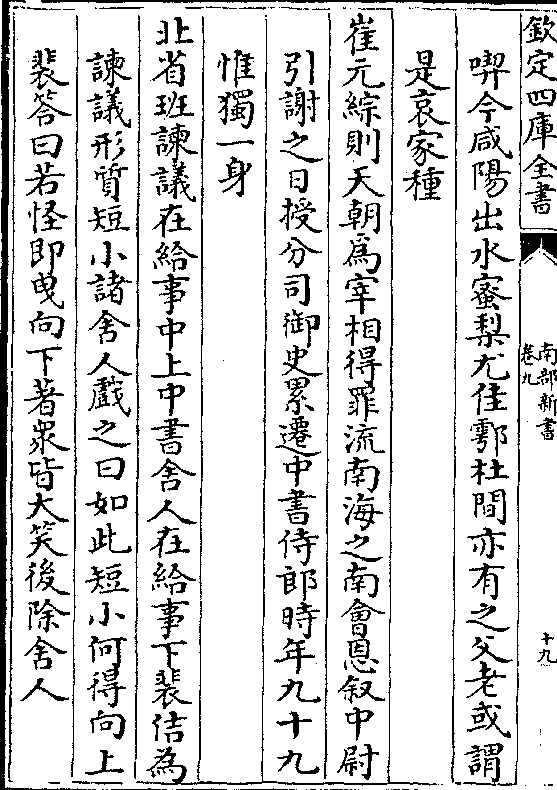 欽定四庫全書
南部新書
卷九
十九
喫今咸陽出水蜜梨尤佳鄠杜間亦有之父老或謂
是哀家種
崔元綜則天朝爲宰相得罪流南海之南會恩叙中尉
引謝之日授分司御史累遷中書侍郎時年九十九
惟獨一身
北省班諫議在給事中上中書舍人在給事下裴佶為
諫議形質短小諸舍人戲之曰如此短小何得向上
裴答曰若怪即曵向下著衆皆大笑後除舍人